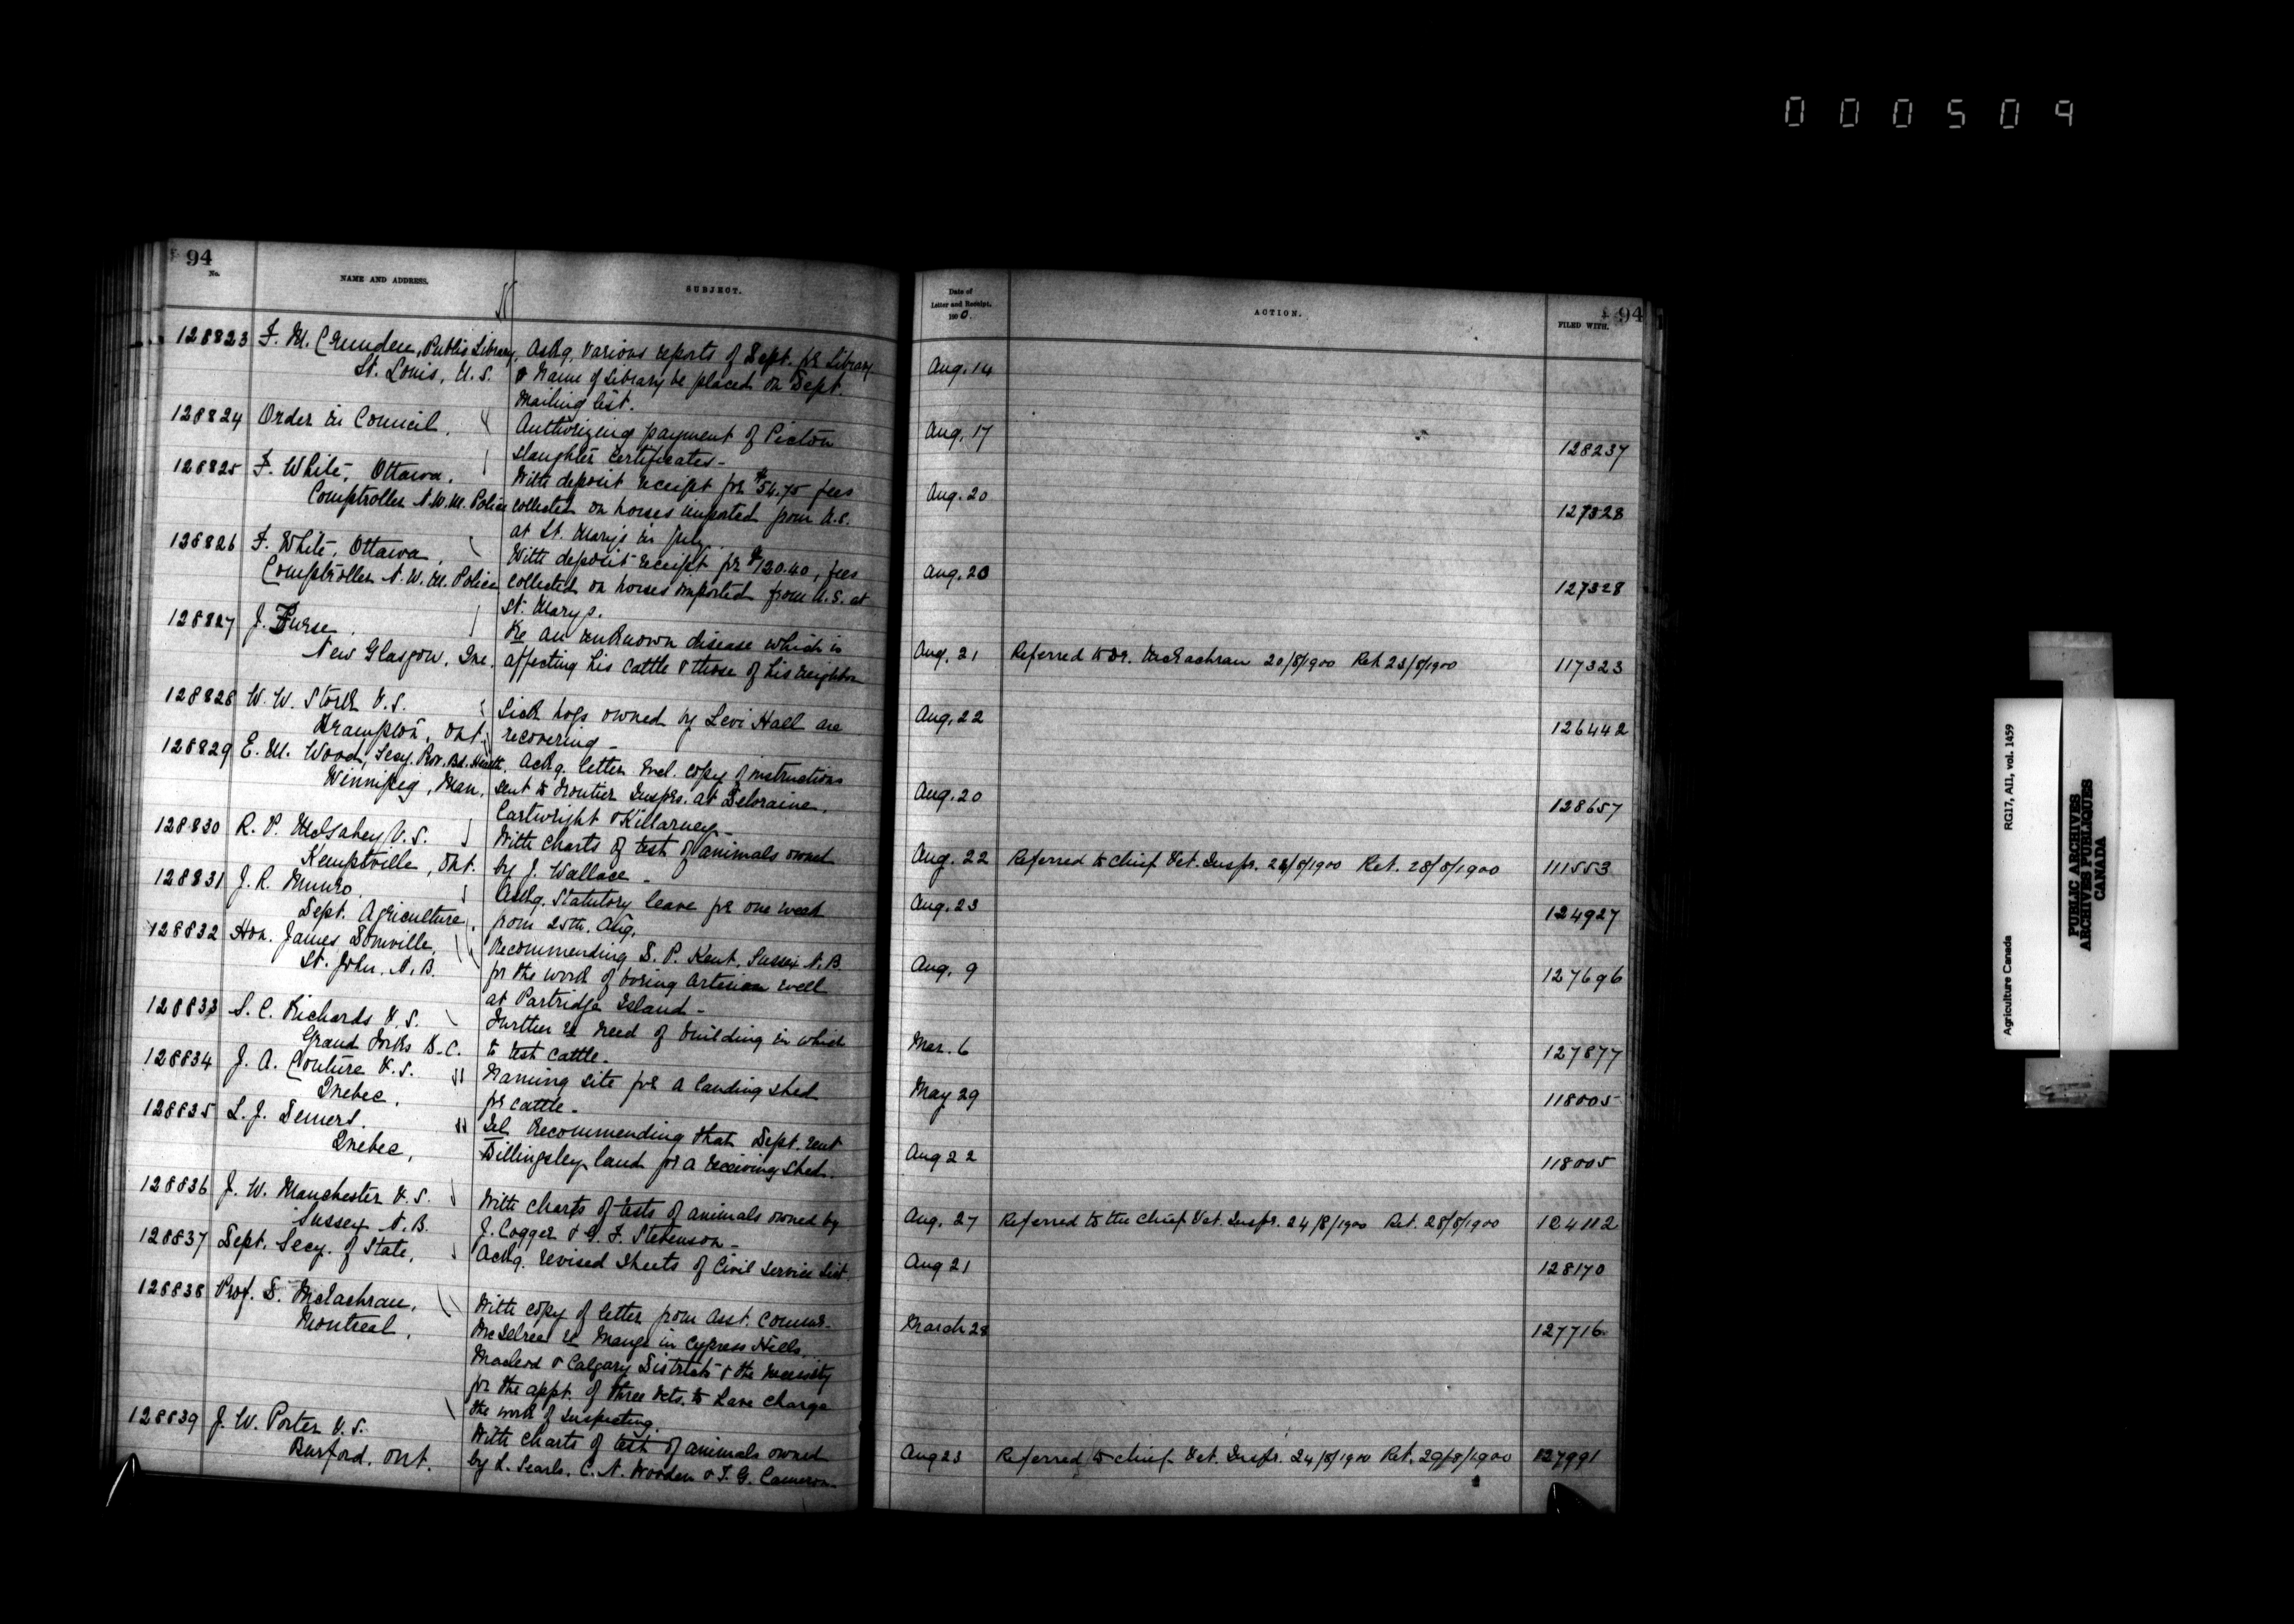 000509
94
No.
NAME AND ADDRESS.
SUBJECT.
128823 F. M. Crunden, Public Library, Ackg. various reports of Dept. for Library
St. Louis, U.S. & name of Library be placed on Dept.
mailing list.
128824 Order in Council. Authorizing payment of Pictou
slaughter certificates -
128825 F. White, Ottawa. With deposit receipt for $54.75 fees
Comptroller N.W.M. Police collected on horses imported from U.S.
at St. Marys in July.
128826 F. White, Ottawa. With deposit receipt for $120.40, fees
Comptroller N.W.M. Police collected on horses imported from U.S. at
St. Marys.
128827 J. Furse. Re an unknown disease which is
New Glasgow, Que. affecting his cattle & those of his neighbor
128828 W. W. Stork V.S. Sick hogs owned by Levi Hall are
Brampton, Ont. recovering -
128829 E. M. Wood, Secy. Prov. Bd. Health. Ackg. letter incl. copy of instructions
Winnipeg, Man. sent to frontier Insprs. at Deloraine,
Cartwright & Killarney -
128830 R. P. McGahey V.S. With charts of test of animals owned
Kemptville, Ont. by J. Wallace -
128831 J. R. Munro. Askg. Statutory leave for one week
Dept. Agriculture. from 25th. Aug.
128832 Hon. James Domville, Recommending D. P. Kent, Sussex N.B.
St. John, N.B. for the work of boring artesian well
at Partridge Island -
128833 S. C. Richards V.S. Further re need of building in which
Grand Forks B.C. to test cattle -
128834 J. A. Couture V.S. Naming site for a landing shed
Quebec. for cattle -
128835 L. J. Demers. Tel. Recommending that Dept. rent
Quebec. Billingsley land for a receiving shed.
128836 J. W. Manchester V.S. With charts of tests of animals owned by
Sussex N.B. J. Cogger & G. F. Stevenson -
128837 Dept. Secy. of State, Ackg. revised sheets of Civil Service List.
128838 Prof. D. McEachran, With copy of letter from Asst. Commr.
Montreal. McIlree re mange in Cypress Hills,
Macleod & Calgary Districts & the necessity
for the appt. of three Vets. to have charge
the work of inspecting.
128839 J. W. Porter V.S. With charts of test of animals owned
Burford, Ont. by L. Searls, C. N. Wooden & T. G. Cameron -
Date of
Letter and Receipt.
1900.
ACTION.
FILED WITH.
94
Aug. 14
Aug. 17 128237
Aug. 20 127328
Aug. 20 127328
Aug. 21 Referred to Dr. McEachran 20/8/1900 Ret. 23/8/1900 117323
Aug. 22 126442
Aug. 20 128657
Aug. 22 Referred to Chief Vet. Inspr. 23/8/1900 Ret. 28/8/1900 111553
Aug. 23 124927
Aug. 9 127696
Mar. 6 127877
May 29 118005
Aug 22 118005
Aug. 27 Referred to the Chief Vet. Inspr. 24/8/1900 Ret. 28/8/1900 124112
Aug 21 128170
March 28 127716
Aug 23 Referred to Chief Vet. Inspr. 24/8/1900 Ret. 29/8/1900 127991
Agriculture Canada RG17, AII, vol. 1459
PUBLIC ARCHIVES
ARCHIVES PUBLIQUES
CANADA